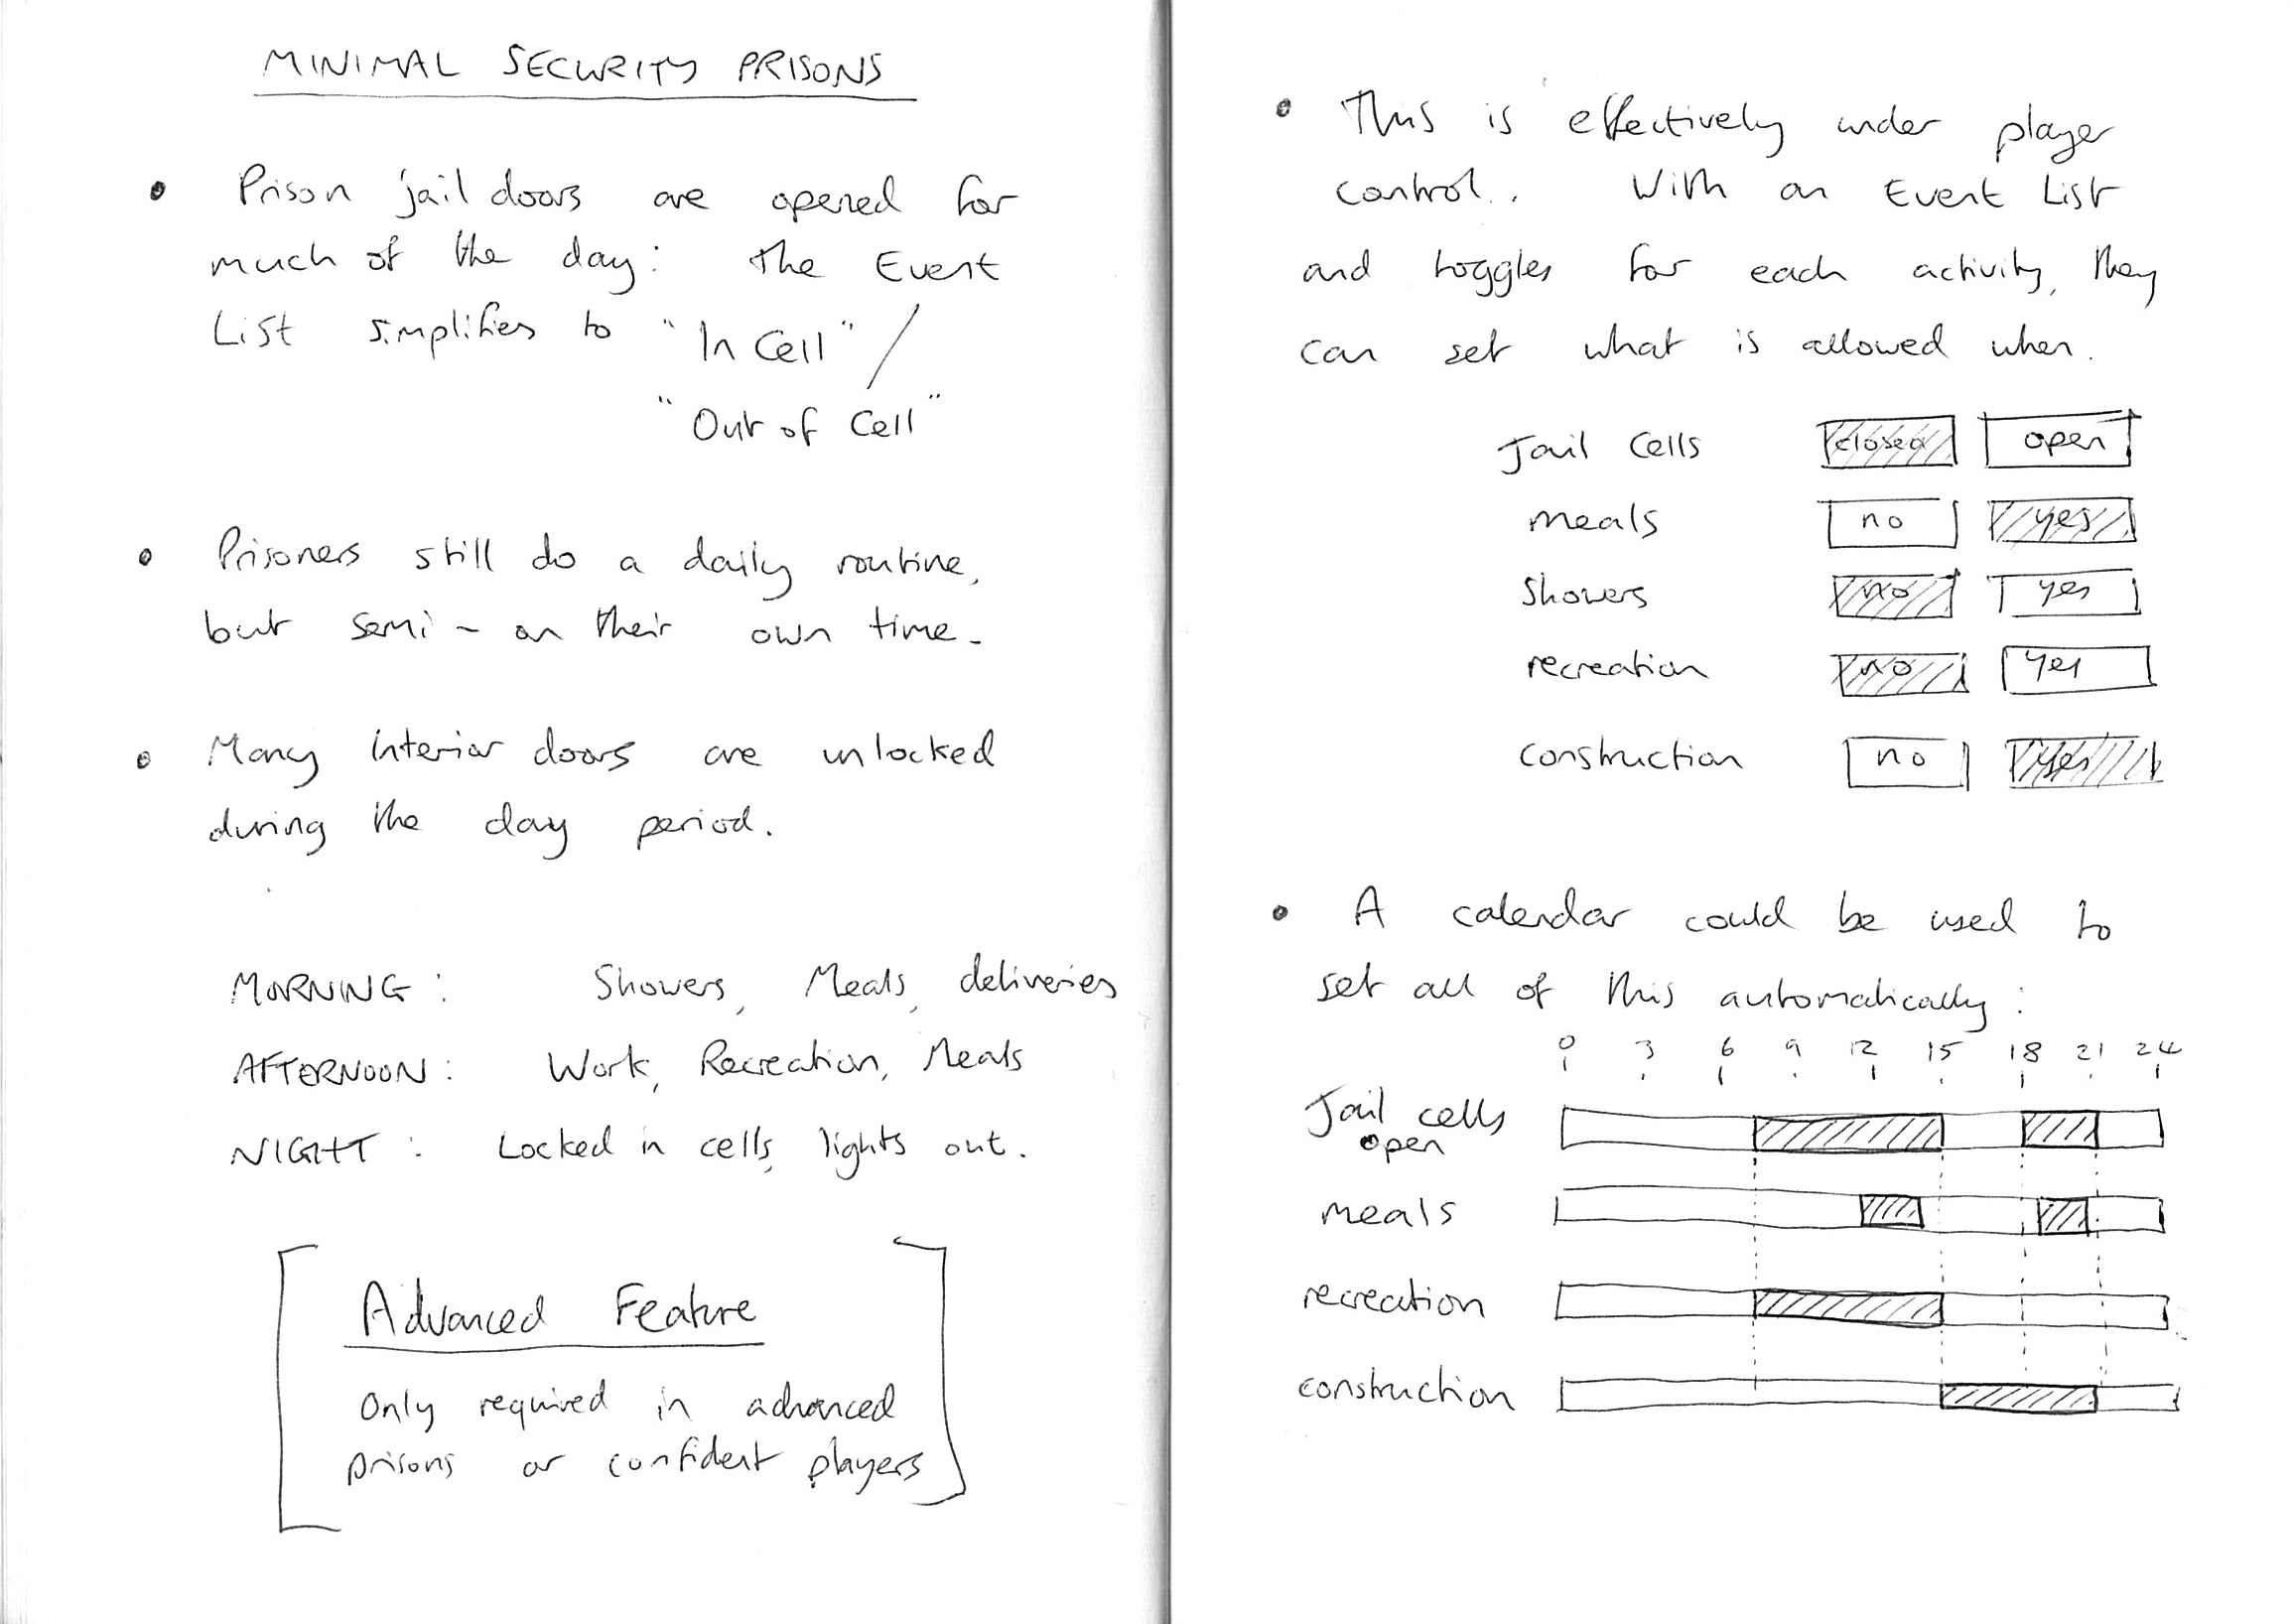 MINIMAL SECURITY PRISONS
• Prison jail doors are opened for
much of the day: The Event
List simplifies to "In Cell" /
"Out of Cell"
• Prisoners still do a daily routine,
but semi - on their own time.
• Many interior doors are unlocked
during the day period.
MORNING: Showers, Meals, deliveries
AFTERNOON: Work, Recreation, Meals
NIGHT: Locked in cells, lights out.
Advanced Feature
Only required in advanced
prisons or confident players
• This is effectively under player
control. With an Event List
and toggles for each activity, they
can set what is allowed when.
Jail Cells closed open
meals no yes
showers no yes
recreation no yes
construction no yes
• A calendar could be used to
set all of this automatically:
0 3 6 9 12 15 18 21 24
Jail cells
open
meals
recreation
construction